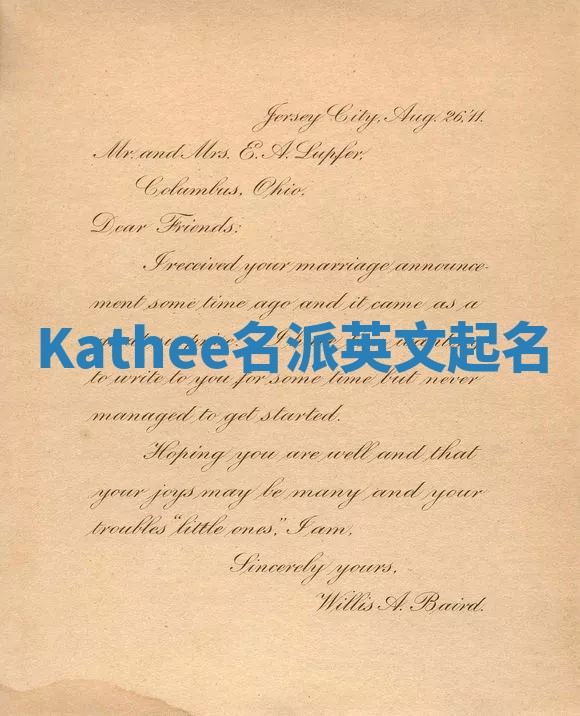 Jersey City, Aug. 26, '11.
Mr. and Mrs. E. A. Lupfer,
Columbus, Ohio.
Dear Friends:
I received your marriage announce-
ment some time ago and it came as a
Kathee名派英文起名
to write to you for some time but never
managed to get started.
Hoping you are well and that
your joys may be many and your
troubles "little ones," I am,
Sincerely yours,
Willis A. Baird.